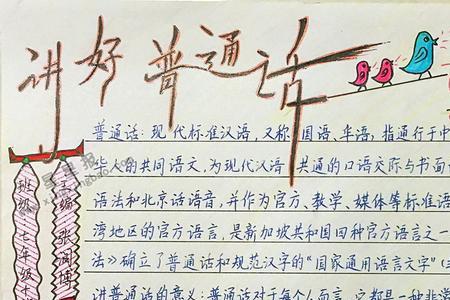 讲好普通话
普通话：现代标准汉语，又称国语、华语，指通行于中
华人的共同语文，为现代汉语共通的口语交际与书面
语法和北京话语音，并作为官方、教学、媒体等标准语
湾地区的官方语言，是新加坡共和国四种官方语言之一
法》确立了普通话和规范汉字的"国家通用语言文字"（
讲普通话的意义：普通话对于每个人而言，它都是一种非常
主编：张闻博
班级：七年级十